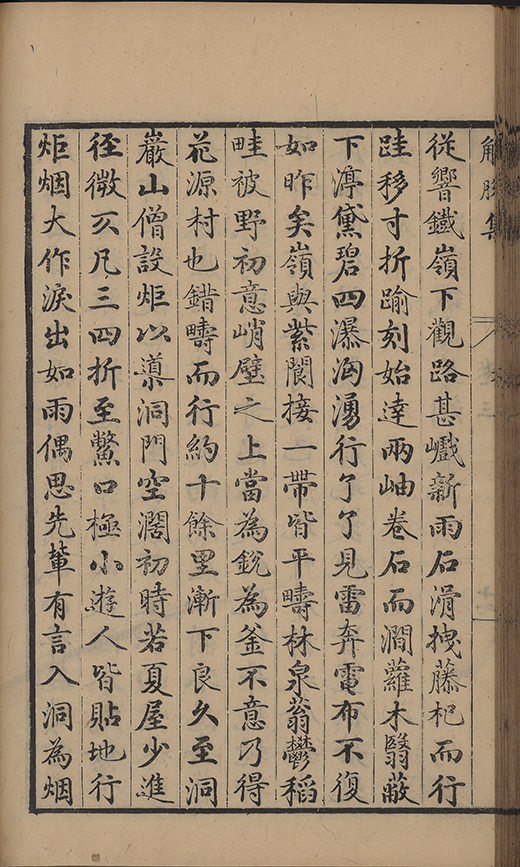 解脫集
從響鐵嶺下觀路甚巇新雨石滑拽藤杞而行
跬移寸折踰刻始達兩岫卷石而澗蘿木翳蔽
下渟黛碧四瀑洶湧行了了見雷奔電布不復
如昨矣嶺與紫閬接一帶皆平疇林泉蓊鬱稻
畦被野初意峭壁之上當為銳為釜不意乃得
花源村也錯疇而行約十餘里漸下良久至洞
巖山僧設炬以導洞門空濶初時若夏屋少進
徑微仄凡三四折至鱉口極小遊人皆貼地行
炬烟大作淚出如雨偶思先輩有言入洞為烟